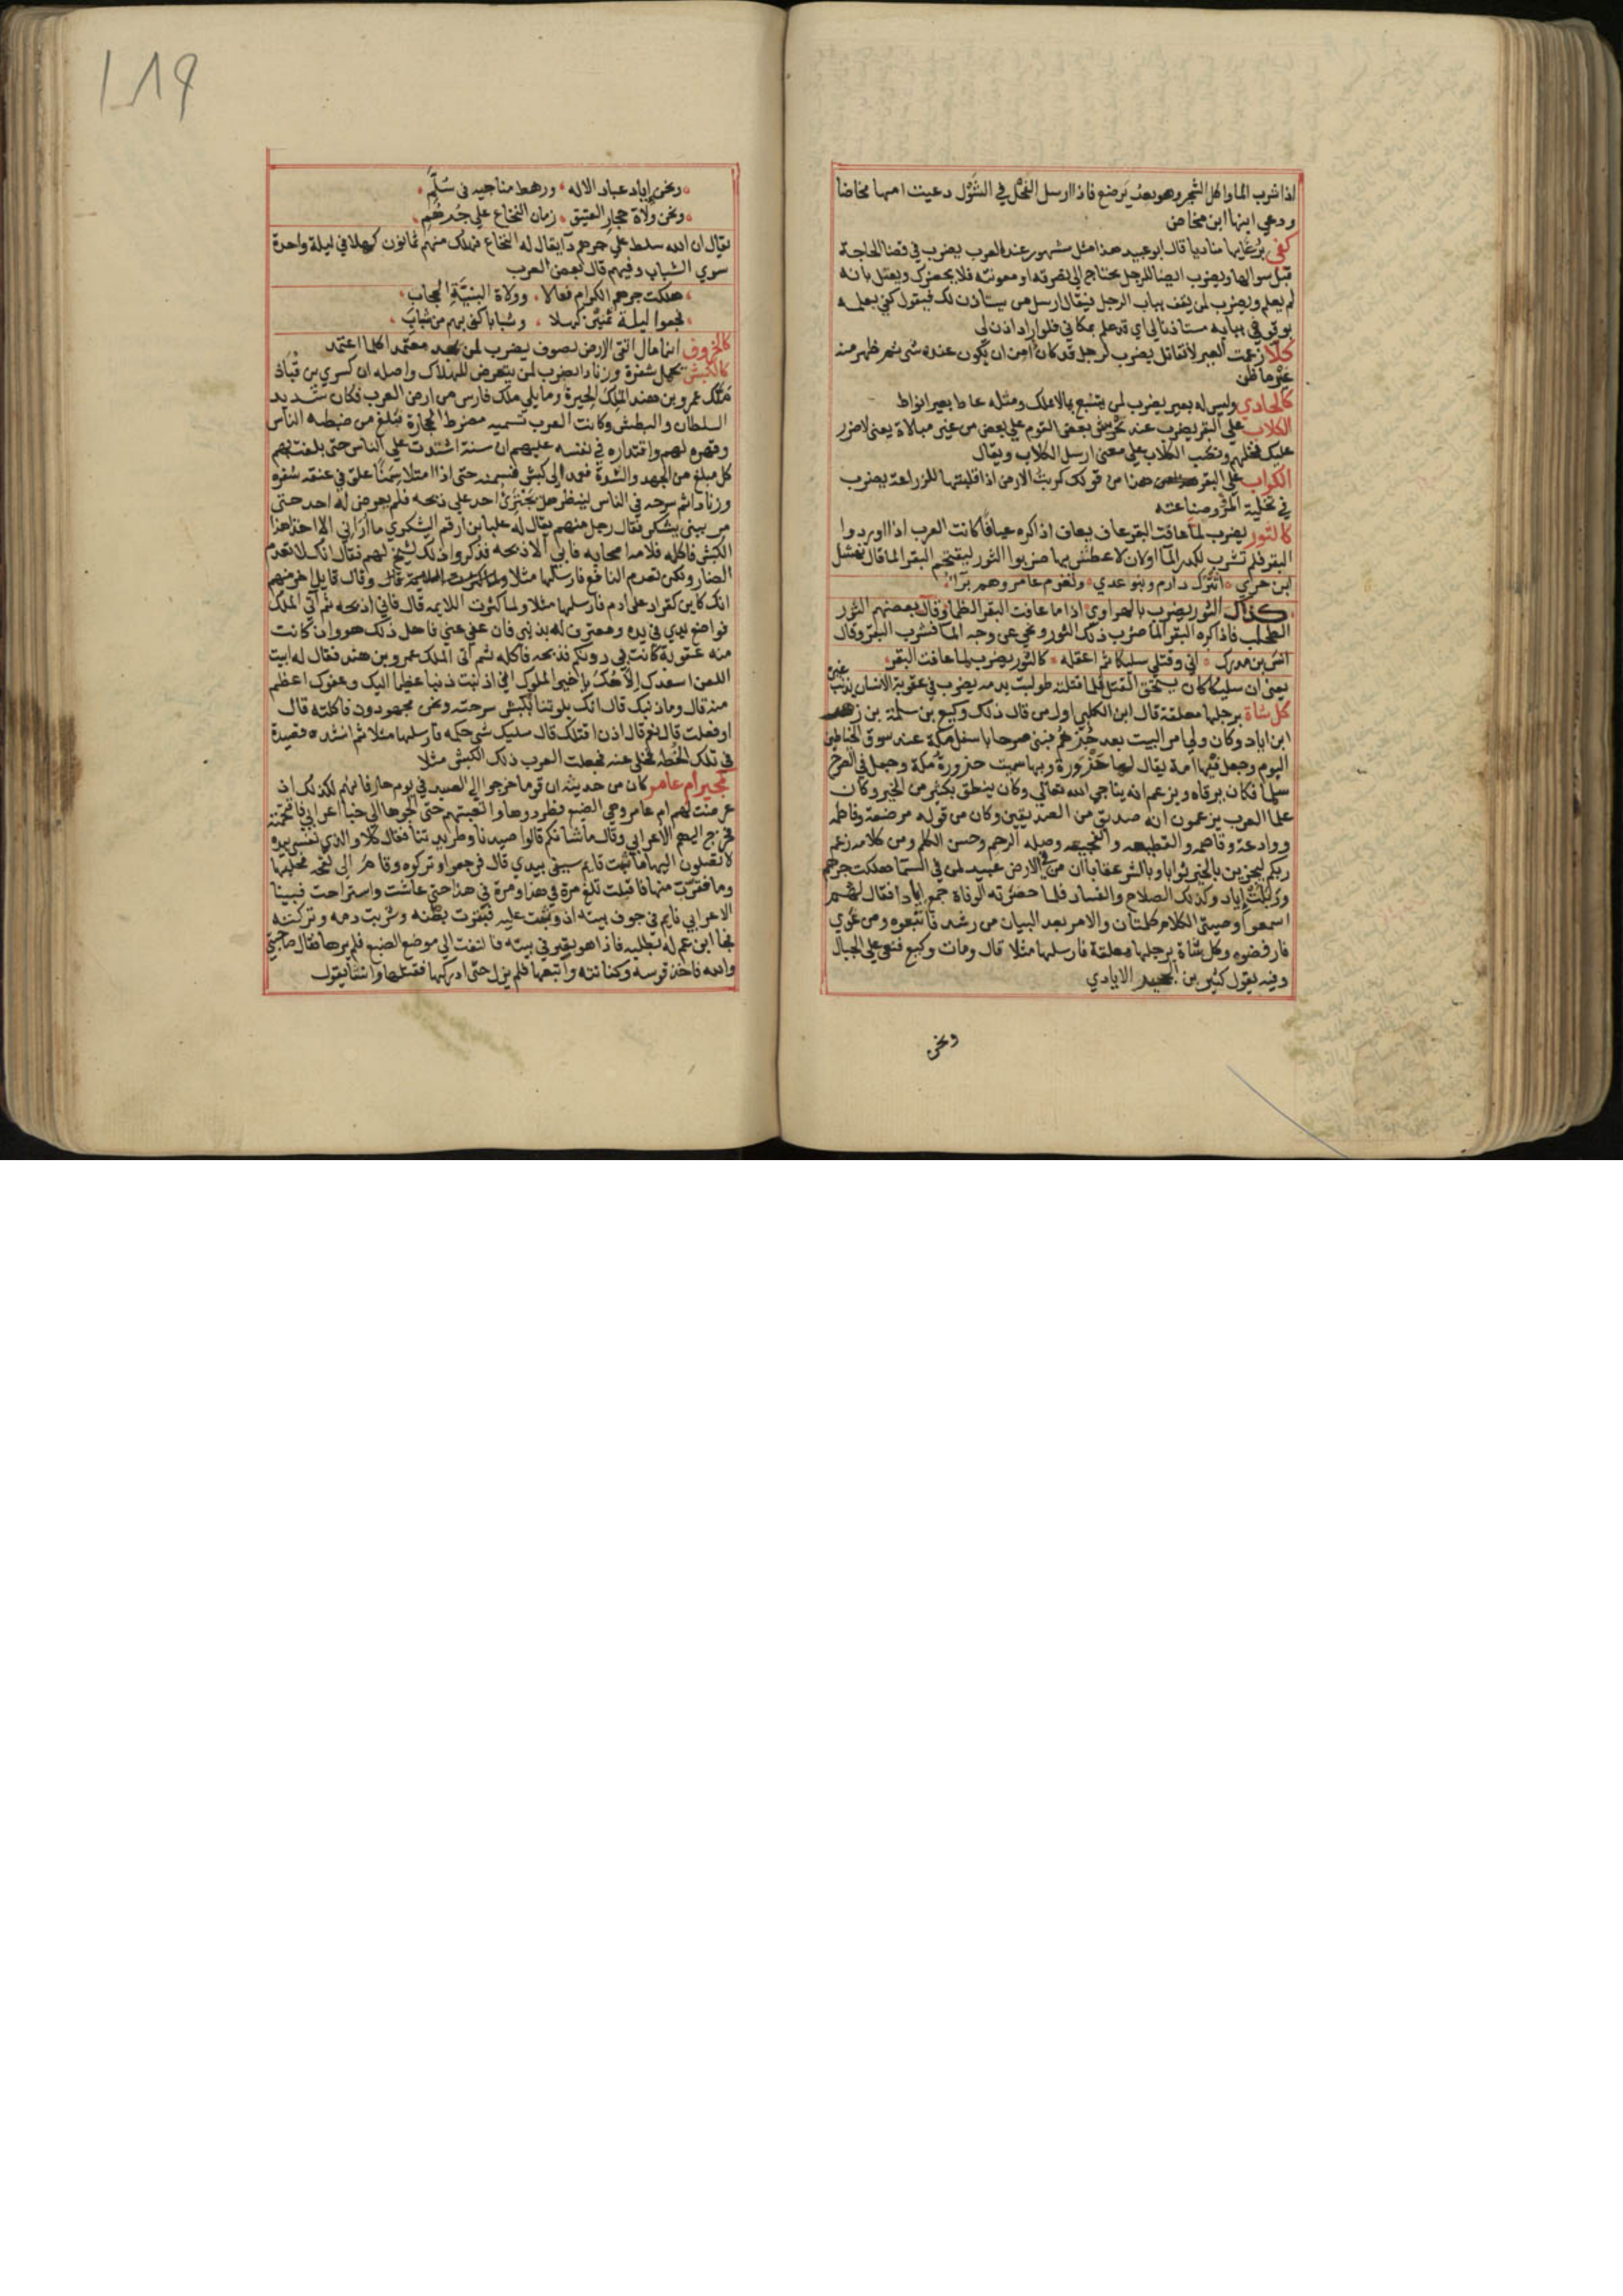 اذا شرب الما واكل الشجر وهو بعد يرضع فاذا ارسل الفحل في الشول دعيت امها مخاضا
ودعي ابنها ابن مخاض
كفى برغايها مناديا قال ابو عبيد هذا مثل مشهور عند العرب يضرب في قضا الحاجة
قبل سوالها ويضرب ايضا للرجل يحتاج الى نصرته او معونته فلا يحضرك ويعتل بانه
لم يعلم ويضرب لمن يقف بباب الرجل فيقال ارسل من يستاذن لك فيقول كفى بعلمه
بوقوفي ببابه مستاذنا لي اي قد علم بمكاني فلو اراد اذن لي
كلا زعمت العير لا تقاتل يضرب لرجل قد كان امن ان يكون عنده شي ثم ظهر منه
غير ما ظن
كالحادي وليس له بعير يضرب لمن يتشبع بما لا يملك ومثله عاط بغير انواط
الكلاب على البقر يضرب عند تحريش بعض القوم على بعض من غير مبالاة يعني لا ضرر
عليك فخلهم ونصب الكلاب على معنى ارسل الكلاب ويقال
الكراب على البقر هذا من قولك كربت الارض اذا قلبتها للزراعة يضرب
في تخلية المرء وصناعته
كالثور يضرب لما عافت البقر عاف يعاف اذا كره عيافا كانت العرب اذا اوردوا
البقر فلم تشرب لكدر الما او لان لا عطش بها ضربوا الثور ليقتحم البقر الما قال نهشل
ابن حري اتترك دارم وبنو عدي وتغرم عامر وهم برآء
كذاك الثور يضرب بالهراوي اذا ما عافت البقر الظماء وقال بعضهم الثور
الطحلب فاذا كره البقر الما ضرب ذلك الثور ونحي عن وجه الما فشرب البقر وقال
انس بن مدرك اني وقتلي سليكا ثم اعقله كالثور يضرب لما عافت البقر
يعني ان سليكا كان يستحق القتل فلما قتلته طولبت بدمه يضرب في عقوبة الانسان بذنب غيره
كل شاة برجلها معلقة قال ابن الكلبي اول من قال ذلك وكيع بن سلمة بن زهير
ابن اياد وكان ولي امر البيت بعد جرهم فبنى صرحا باسفل مكة عند سوق الخناطين
اليوم وجعل فيها امة يقال لها حزورة وبها سميت حزورة مكة وجعل في الصرح
سلما فكان يرقاه ويزعم انه يناجي الله تعالى وكان ينطق بكثير من الخير وكان
علما العرب يزعمون انه صديق من الصديقين وكان من قوله مرضعة وفاطمه
ووادعة وقاصمه والقطيعه والفجيعه وصلة الرحم وحسن الكلم ومن كلامه زعم
ربكم ليجزين بالخير ثوابا وبالشر عقابا ان من في الارض عبيد لمن في السما هلكت جرهم
وربلت اياد وكذلك الصلاح والفساد فلما حضرته الوفاة جمع ايادا فقال لهم
اسمعوا وصيتي الكلام كلمتان والامر بعد البيان من رشد فاتبعوه ومن غوي
فارفضوه وكل شاة برجلها معلقة فارسلها مثلا قال ومات وكيع فنعي على الجبال
وفيه يقول الايادي
ونحن
١٨٩
ونحن اياد عباد الاله ورهط مناجيه في سلم
ونحن ولاة حجاب العتيق زمان النخاع على جرهم
يقال ان الله سلط على جرهم دآ يقال له النخاع فهلك منهم ثمانون كهلا في ليلة واحدة
سوي الشباب وفيهم قال بعض العرب
هلكت جرهم الكرام فعالا وولاة البنية الحجاب
فجعوا ليلة ثمنين كهلا وشبابا كفى بهم من شباب
كالخروف اينما مال اتقى الارض بصوف يضرب لمن يجد معتمدا كلما اعتمد
كالكبش يحمل شفرة وزنادا يضرب لمن يتعرض للهلاك واصله ان كسري بن قباذ
ملك عمرو بن هند الملك الحيرة وما يلي ملك فارس من ارض العرب فكان شديد
السلطان والبطش وكانت العرب تسميه مضرط الحجارة فبلغ من ضبطه الناس
وقهره لهم واقتداره في نفسه عليهم ان سنة اشتدت على الناس حتى بلغت بهم
كل مبلغ من الجهد والشدة فعمد الى كبش فسمنه حتى اذا امتلا سمنا علق في عنقه شفرة
وزنادا ثم سرحه في الناس لينظر هل يجترئ احد على ذبحه فلم يعرض له احد حتى
مر ببني يشكر فقال رجل منهم يقال له علبا بن ارقم اليشكري ما اراني الا اخذ هذا
الكبش فاكله فلامه اصحابه فابى الا ذبحه فذكروا ذلك لشيخ لهم فقال انك لا تعدم
الضار ولكن تعدم النافع فارسلها مثلا وقال قايل اخر منهم
انك كاين كقدار على ارم فارسلها مثلا ولما كثرت اللايمه قال فاني اذبحه ثم اتي الملك
فواضع يدي في يده ومعترف له بذنبي فان عفى عني فاهل ذلك هو وان كانت
منه عقوبة كانت بي دونكم فذبحه فاكله ثم اتى الملك عمرو بن هند فقال له ابيت
اللعن اسعدك الاهك يا خير الملوك اني اذنبت ذنبا عظيما اليك وعفوك اعظم
منه قال وما ذنبك قال انك بلوتنا بكبش سرحته ونحن مجهودون فاكلته قال
اوفعلت قال نعم قال اذن اقتلك قال مليك شي حكمه فارسلها مثلا ثم انشده قصيدة
في تلك الخطه فخلى عنه فجعلت العرب ذلك الكبش مثلا
كمجير ام عامر كان من حديثه ان قوما خرجوا الى الصيد في يوم حار فانهم لكذلك اذ
عرضت لهم ام عامر وهي الضبع فطردوها واتعبتهم حتى الجوها الى خبا اعرابي فاقتحمته
فخرج اليهم الاعرابي وقال ما شانكم قالوا صيدنا وطريدتنا فقال كلا والذي نفسي بيده
لا تصلون اليها ما ثبت قايم سيفي بيدي قال فرجعوا وتركوه وقام الى لقحه فحلبها
وما فقرب منها فاقبلت تلغ مرة في هذا ومرة في هذا حتى عاشت واستراحت فبينا
الاعرابي نايم في جوف بيته اذ وثبت عليه فبقرت بطنه وشربت دمه وتركته
فجا ابن عم له يطلبه فاذا هو بقير في بيته فالتفت الى موضع الضبع فلم يرها فقال صاحبتي
والله فاخذ قوسه وكنانته واتبعها فلم يزل حتى ادركها فقتلها وانشا يقول